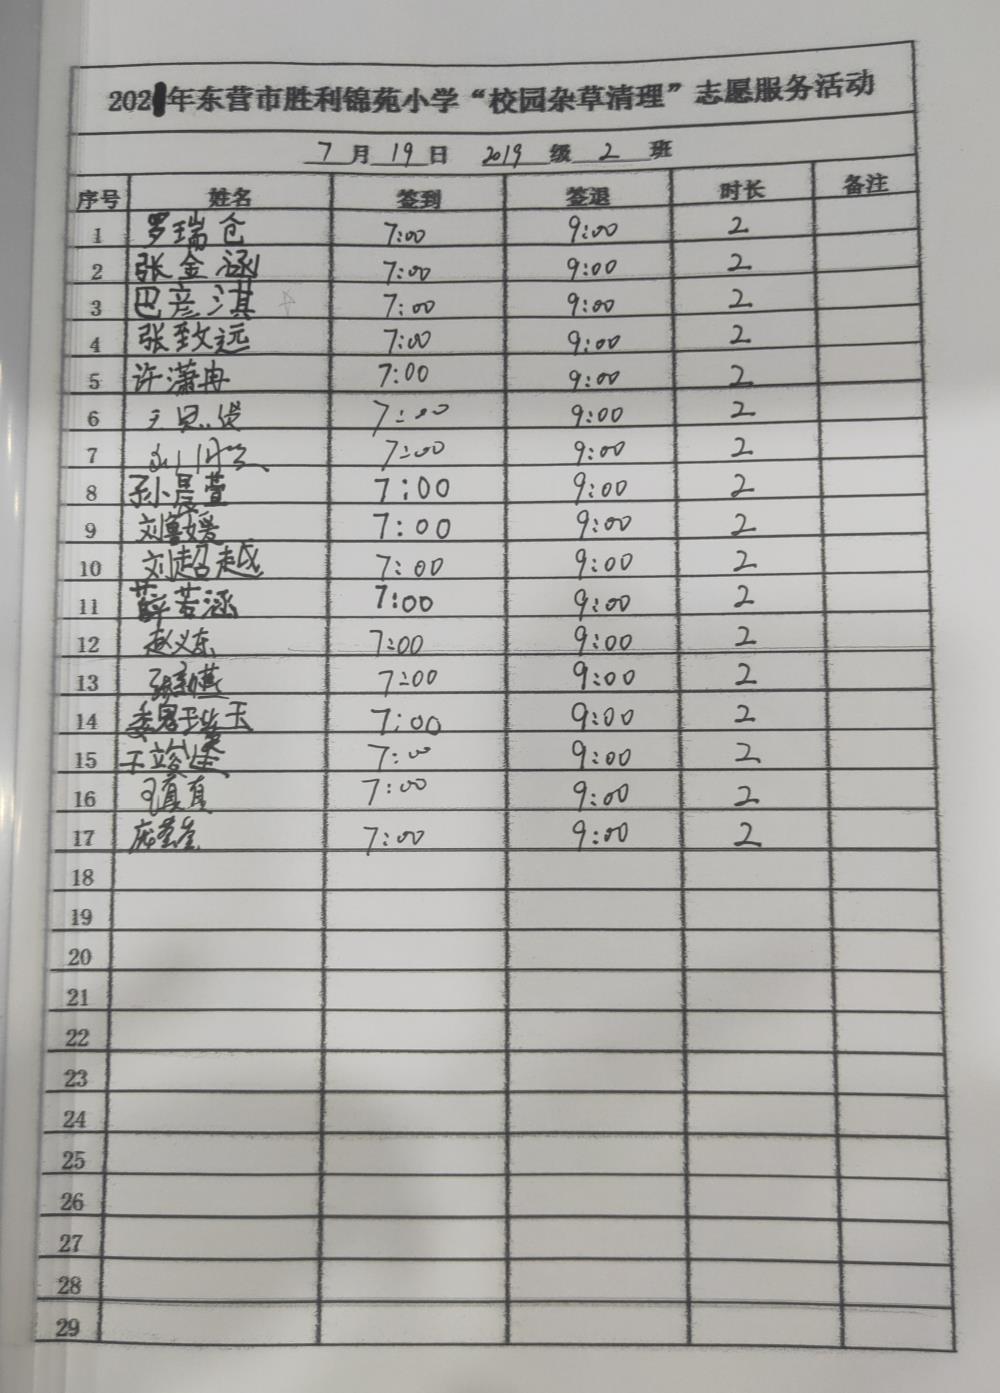 2021年东营市胜利锦苑小学“校园杂草清理”志愿服务活动
7月19日 2019级2班
序号 姓名 签到 签退 时长 备注
1 罗瑞仓 7:00 9:00 2
2 张金涵 7:00 9:00 2
3 巴彦淇 7:00 9:00 2
4 张致远 7:00 9:00 2
5 许潇冉 7:00 9:00 2
6 7:00 9:00 2
7 7:00 9:00 2
8 孙晨萱 7:00 9:00 2
9 刘 媛 7:00 9:00 2
10 刘超越 7:00 9:00 2
11 薛若涵 7:00 9:00 2
12 赵义东 7:00 9:00 2
13 张 7:00 9:00 2
14 魏 玉 7:00 9:00 2
15 王 7:00 9:00 2
16 真真 7:00 9:00 2
17 7:00 9:00 2
18
19
20
21
22
23
24
25
26
27
28
29